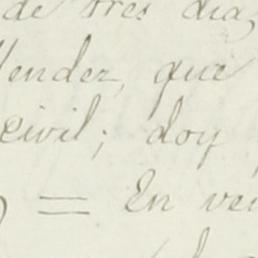 de tres dia
Mendez, que
civil; doy
= En vei